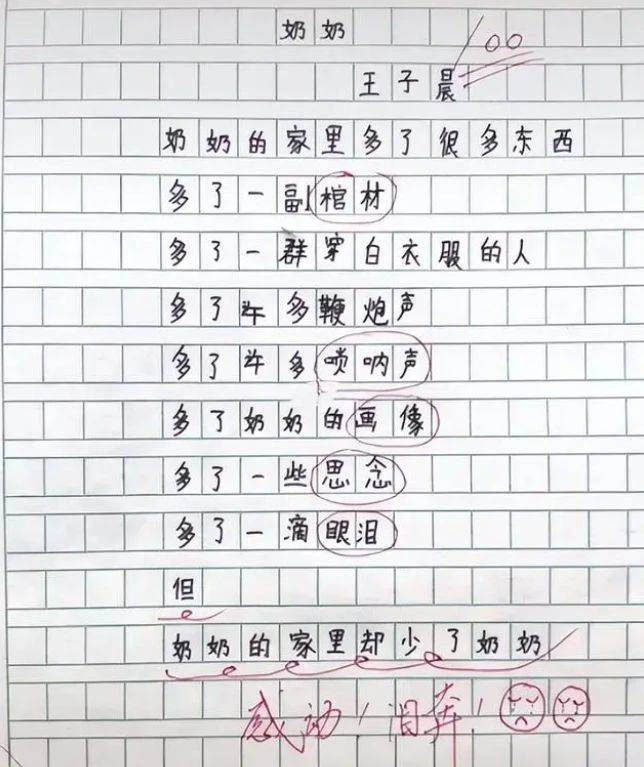 奶奶
100
王子晨
奶奶的家里多了很多东西
多了一副棺材
多了一群穿白衣服的人
多了许多鞭炮声
多了许多唢呐声
多了奶奶的画像
多了一些思念
多了一滴眼泪
但
奶奶的家里却少了奶奶
感动！泪奔！